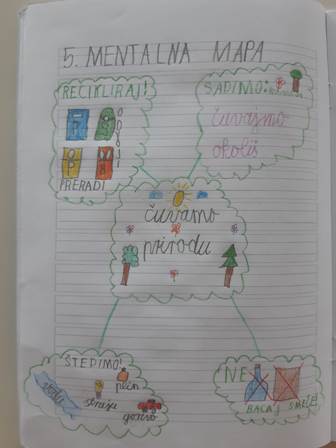 5. MENTALNA MAPA
RECIKLIRAJ!
PRERADI
SADIMO:
čuvajmo
okoliš
čuvamo
prirodu
ŠTEDIMO!
vodu
struju
plin
gorivo
NE
BACAJ SMEĆE!